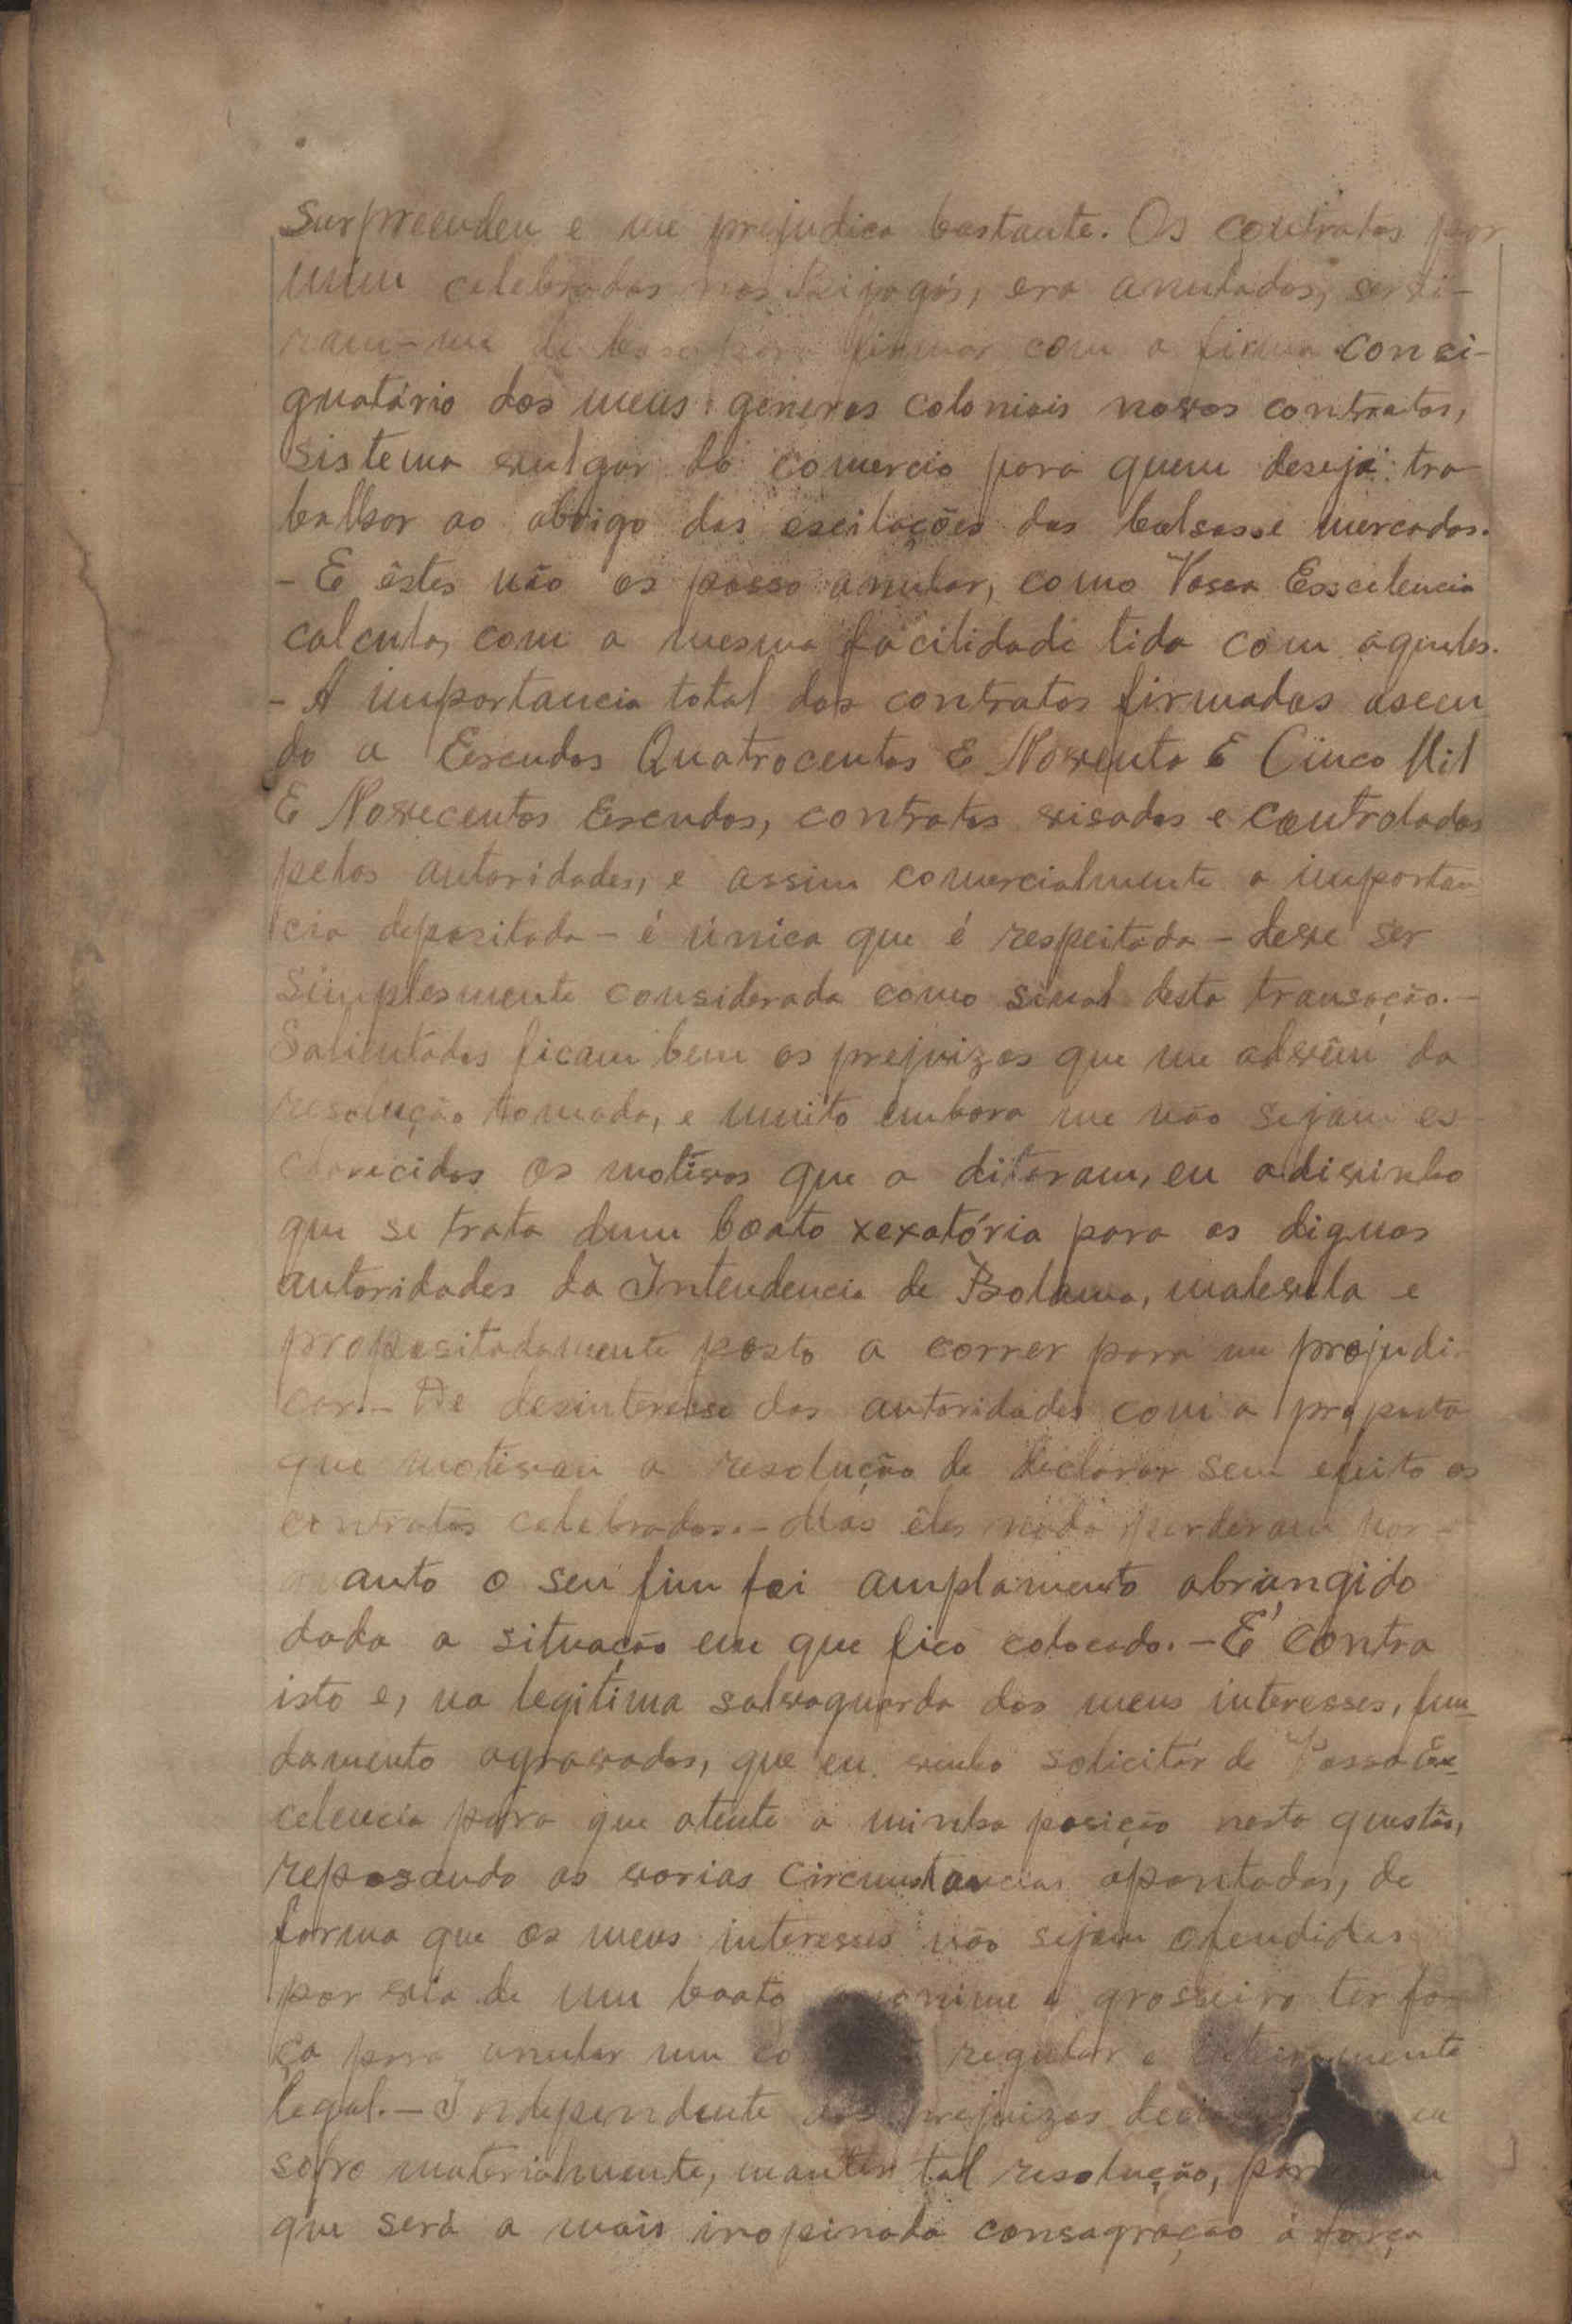 Surpreendeu e me prejudica bastante. Os contratos por
mim celebrados nos Beijagós, era anulados, servi-
ram-me de base para firmar com a firma consi-
gnatário dos meus generos coloniais novos contratos,
sistema vulgar do comercio para quem deseja tra
balhar ao abrigo das oscilações das bolsas e mercados.
- E êstes não os posso anular, como Vossa Esselencia
calcula, com a mesma facilidade tida com aqueles.
- A importancia total dos contratos firmados ascen
do a Escudos Quatrocentos E Noventa E Cinco Mil
E Novecentos Escudos, contratos visados e controlados
pelas autoridades, e assim comercialmente a importan
cia depositada - é única que é respeitada - deve ser
simplesmente considerada como sinal desta transação.-
Salientados ficam bem os prejuizos que me advêm da
resolução tomada, e muito embora me não sejam es
clarecidos os motivos que a ditaram, eu adivinho
que se trata dum boato vexatória para as dignas
autoridades da Intendencia de Bolama, malevola e
propositadamente posto a correr para me prejudi-
car.- De desinteresse das autoridades com a proposta
que motivou a resolução de declarar sem efeito os
contratos celebrados.- Mas êles nada perderam por-
quanto o seu fim foi amplamento abrangido
dada a situação em que fico colocado. - É contra
isto e, na legitima salvaguarda dos meus interesses, fun-
damento agravados, que eu venho solicitar de Vossa Ex-
celencia para que atente a minha posição nesta questão,
reposando as varias circunstancias apontadas, de
forma que os meus interesses não sejam ofendidas
por via de um boato anonimo e grosseiro ter for
ça para anular um regular e inteiramente
legal.- Independente dos prejuizos
sofro materialmente, manter tal resolução,
que será a mais inopinada consagração á força